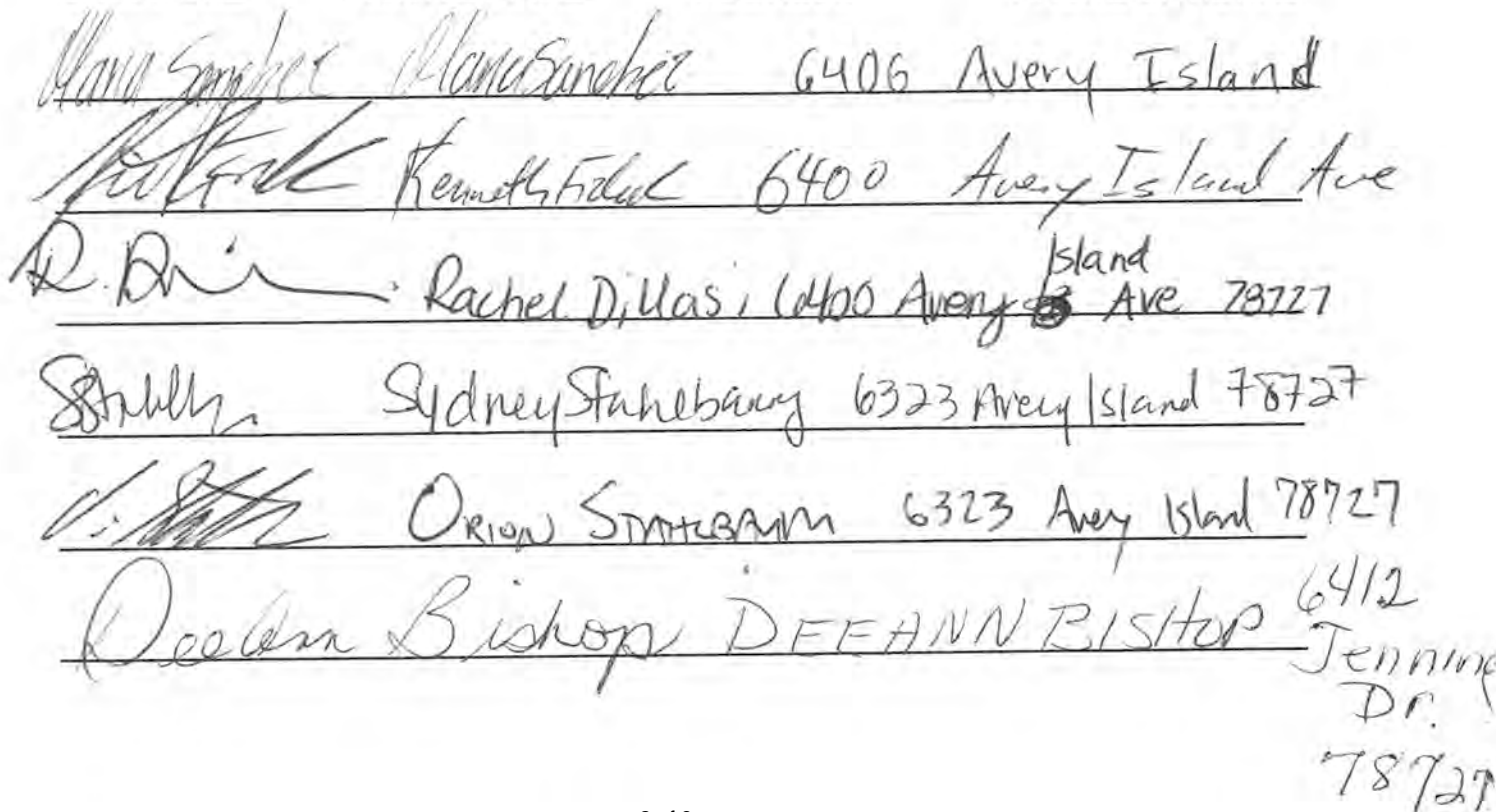 Maria Sanchez Maria Sanchez 6406 Avery Island
Kenneth 6400 Avery Island Ave
Island
R. Rachel 6400 Avery Ave 78727
Sydney 6323 Avery Island 78727
Orion Stahlbaum 6323 Avery Island 78727
DeeAnn Bishop DEEANN BISHOP 6412
Jenning
Dr.
78727